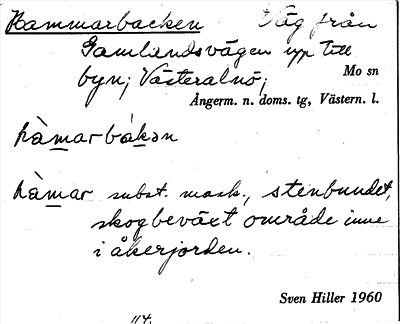 Hammarbacken Väg från
Gamlandsvägen upp till
byn; Västeralnö;
Mo sn
Ångerm. n. doms. tg, Västern. l.
hàmarbàkən
hàmar subst. mask., stenbundet,
skogbeväxt område inne
i åkerjorden.
Sven Hiller 1960